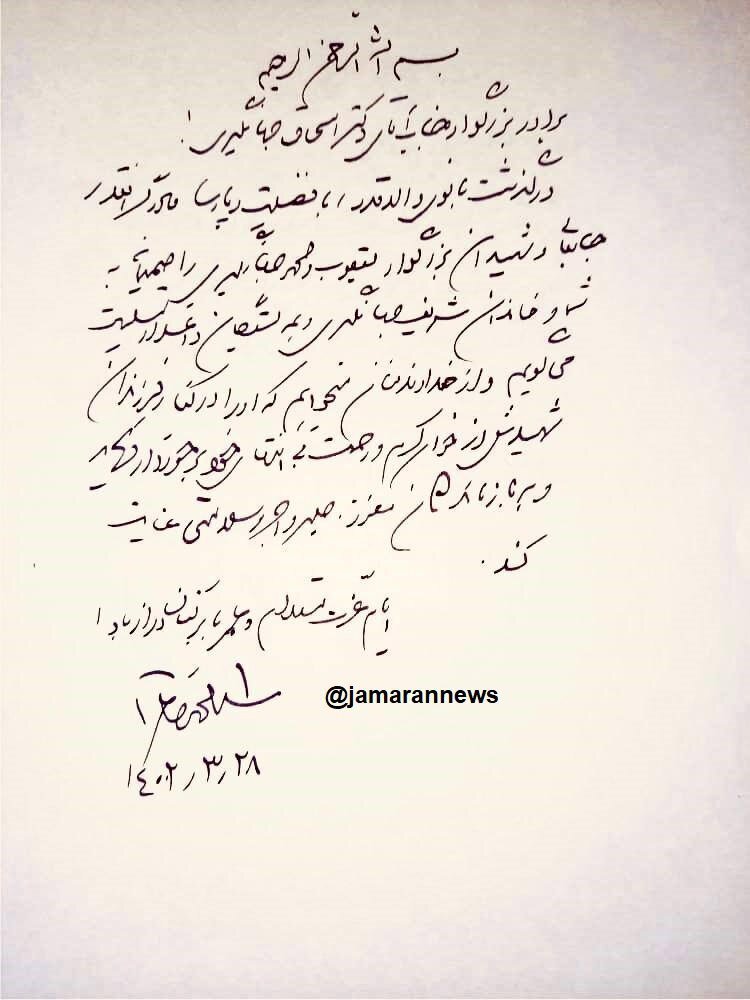 بسم الله الرحمن الرحیم
برادر بزرگوار جناب آقای دکتر اسحاق جهانگیری!
درگذشت بانوی والاقدر، بافضیلت و پارسا مادر گرانقدر
جنابعالی و شهیدان بزرگوار یعقوب و محمد جهانگیری را صمیمانه به
شما و خاندان شریف جهانگیری و همه بستگان داغدار تسلیت
می‌گویم و از خداوند منان می‌خواهم که او را در کنار فرزندان
شهیدش از خوان کرم و رحمت بی انتهای خود برخوردار فرماید
و به بازماندگان معزز، صبر و اجر و سلامتی عنایت
کند.
ایام عزت مستدام و عمر با برکتتان دراز باد!
@jamarannews
۱۴۰۲/۳/۲۸